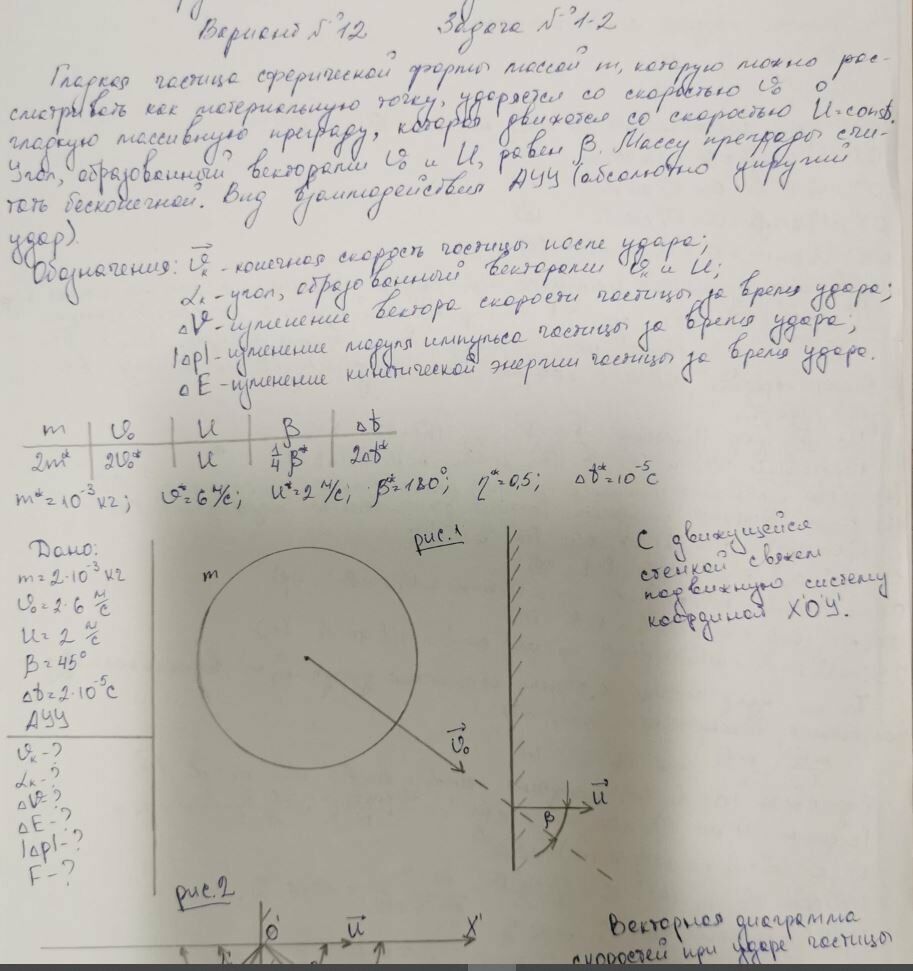 Вариант №12 Задача №1-2
Гладкая частица сферической формы массой m, которую можно рас-
сматривать как материальную точку, ударяется со скоростью υ₀ о
гладкую массивную преграду, которая движется со скоростью U=const.
Угол, образованный векторами υ₀ и U, равен β. Массу преграды счи-
тать бесконечной. Вид взаимодействия АУУ (абсолютно упругий
удар).
Обозначения: υ⃗ₖ - конечная скорость частицы после удара;
αₖ - угол, образованный векторами υₖ и U;
ΔV - изменение вектора скорости частицы за время удара;
|Δp| - изменение модуля импульса частицы за время удара;
ΔE - изменение кинетической энергии частицы за время удара.
m υ₀ U β Δt
2m* 2υ₀* U ¼β* 2Δt*
m*=10⁻³ кг; υ*=6 м/с; U*=2 м/с; β*=180°; η*=0,5; Δt*=10⁻⁵ с
Дано:
m=2·10⁻³ кг
υ₀=2·6 м/с
U=2 м/с
β=45°
Δt=2·10⁻⁵ с
АУУ
υₖ-?
αₖ-?
ΔV-?
ΔE-?
|Δp|-?
F-?
рис.1
m
υ⃗₀
β
U⃗
С движущейся
стенкой свяжем
подвижную систему
координат X'O'Y'.
рис.2
O'
U⃗
X'
Векторная диаграмма
скоростей при ударе частицы